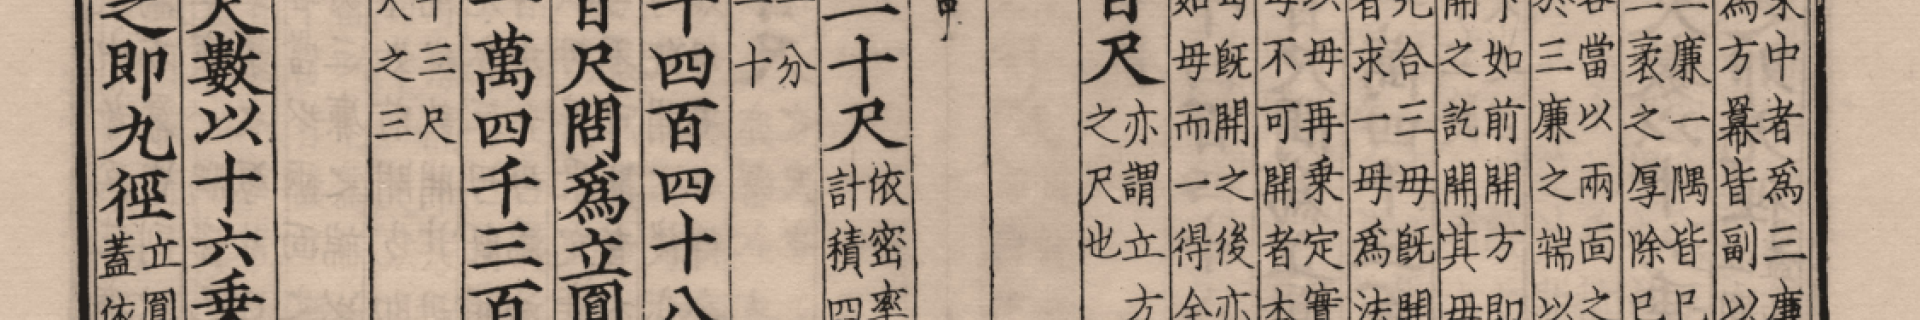 中者爲三廉
爲方冪皆副以
廉一隅皆已
袤之厚除已
當以兩面之
於三廉之端以
如前開方即
開之訖開其毋
合三毋既開
者求一毋爲法
毋再乗定實
毋不可開者本
毋既開之後亦
如毋而一得全
尺
亦謂立方
之尺也
二十尺
依密率
計積四
分
十
十四百四十八
百尺問爲立圓
一萬四千三百
十三尺
之三
數以十六乗
之即九徑
立圓
蓋依